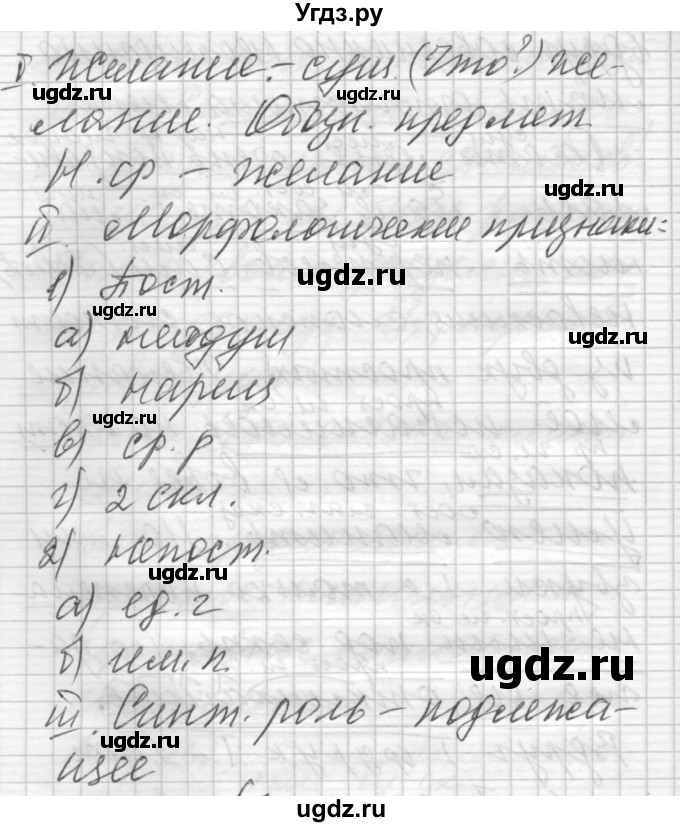 Угдз.ру
I. Желание. – сущ. (Что?) же-
ugdz.ru ugdz.ru
лание. Обозн. предмет
Н. ф – желание
ugdz.ru
II. Морфологические признаки:
1) Пост.
ugdz.ru
ugdz.ru
а) неодуш
ugdz.ru
б) нариц
ugdz.ru
в) ср. р
г) 2 скл.
2) непост.
ugdz.ru
а) ед. ч
б) им. п.
ugdz.ru
III. Синт. роль – подлежа-
ugdz.ru
щее
ugdz.ru